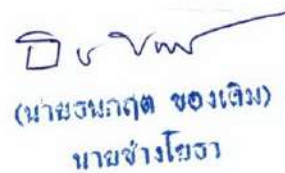 (นายธนกฤต ของเดิม)
นายช่างโยธา